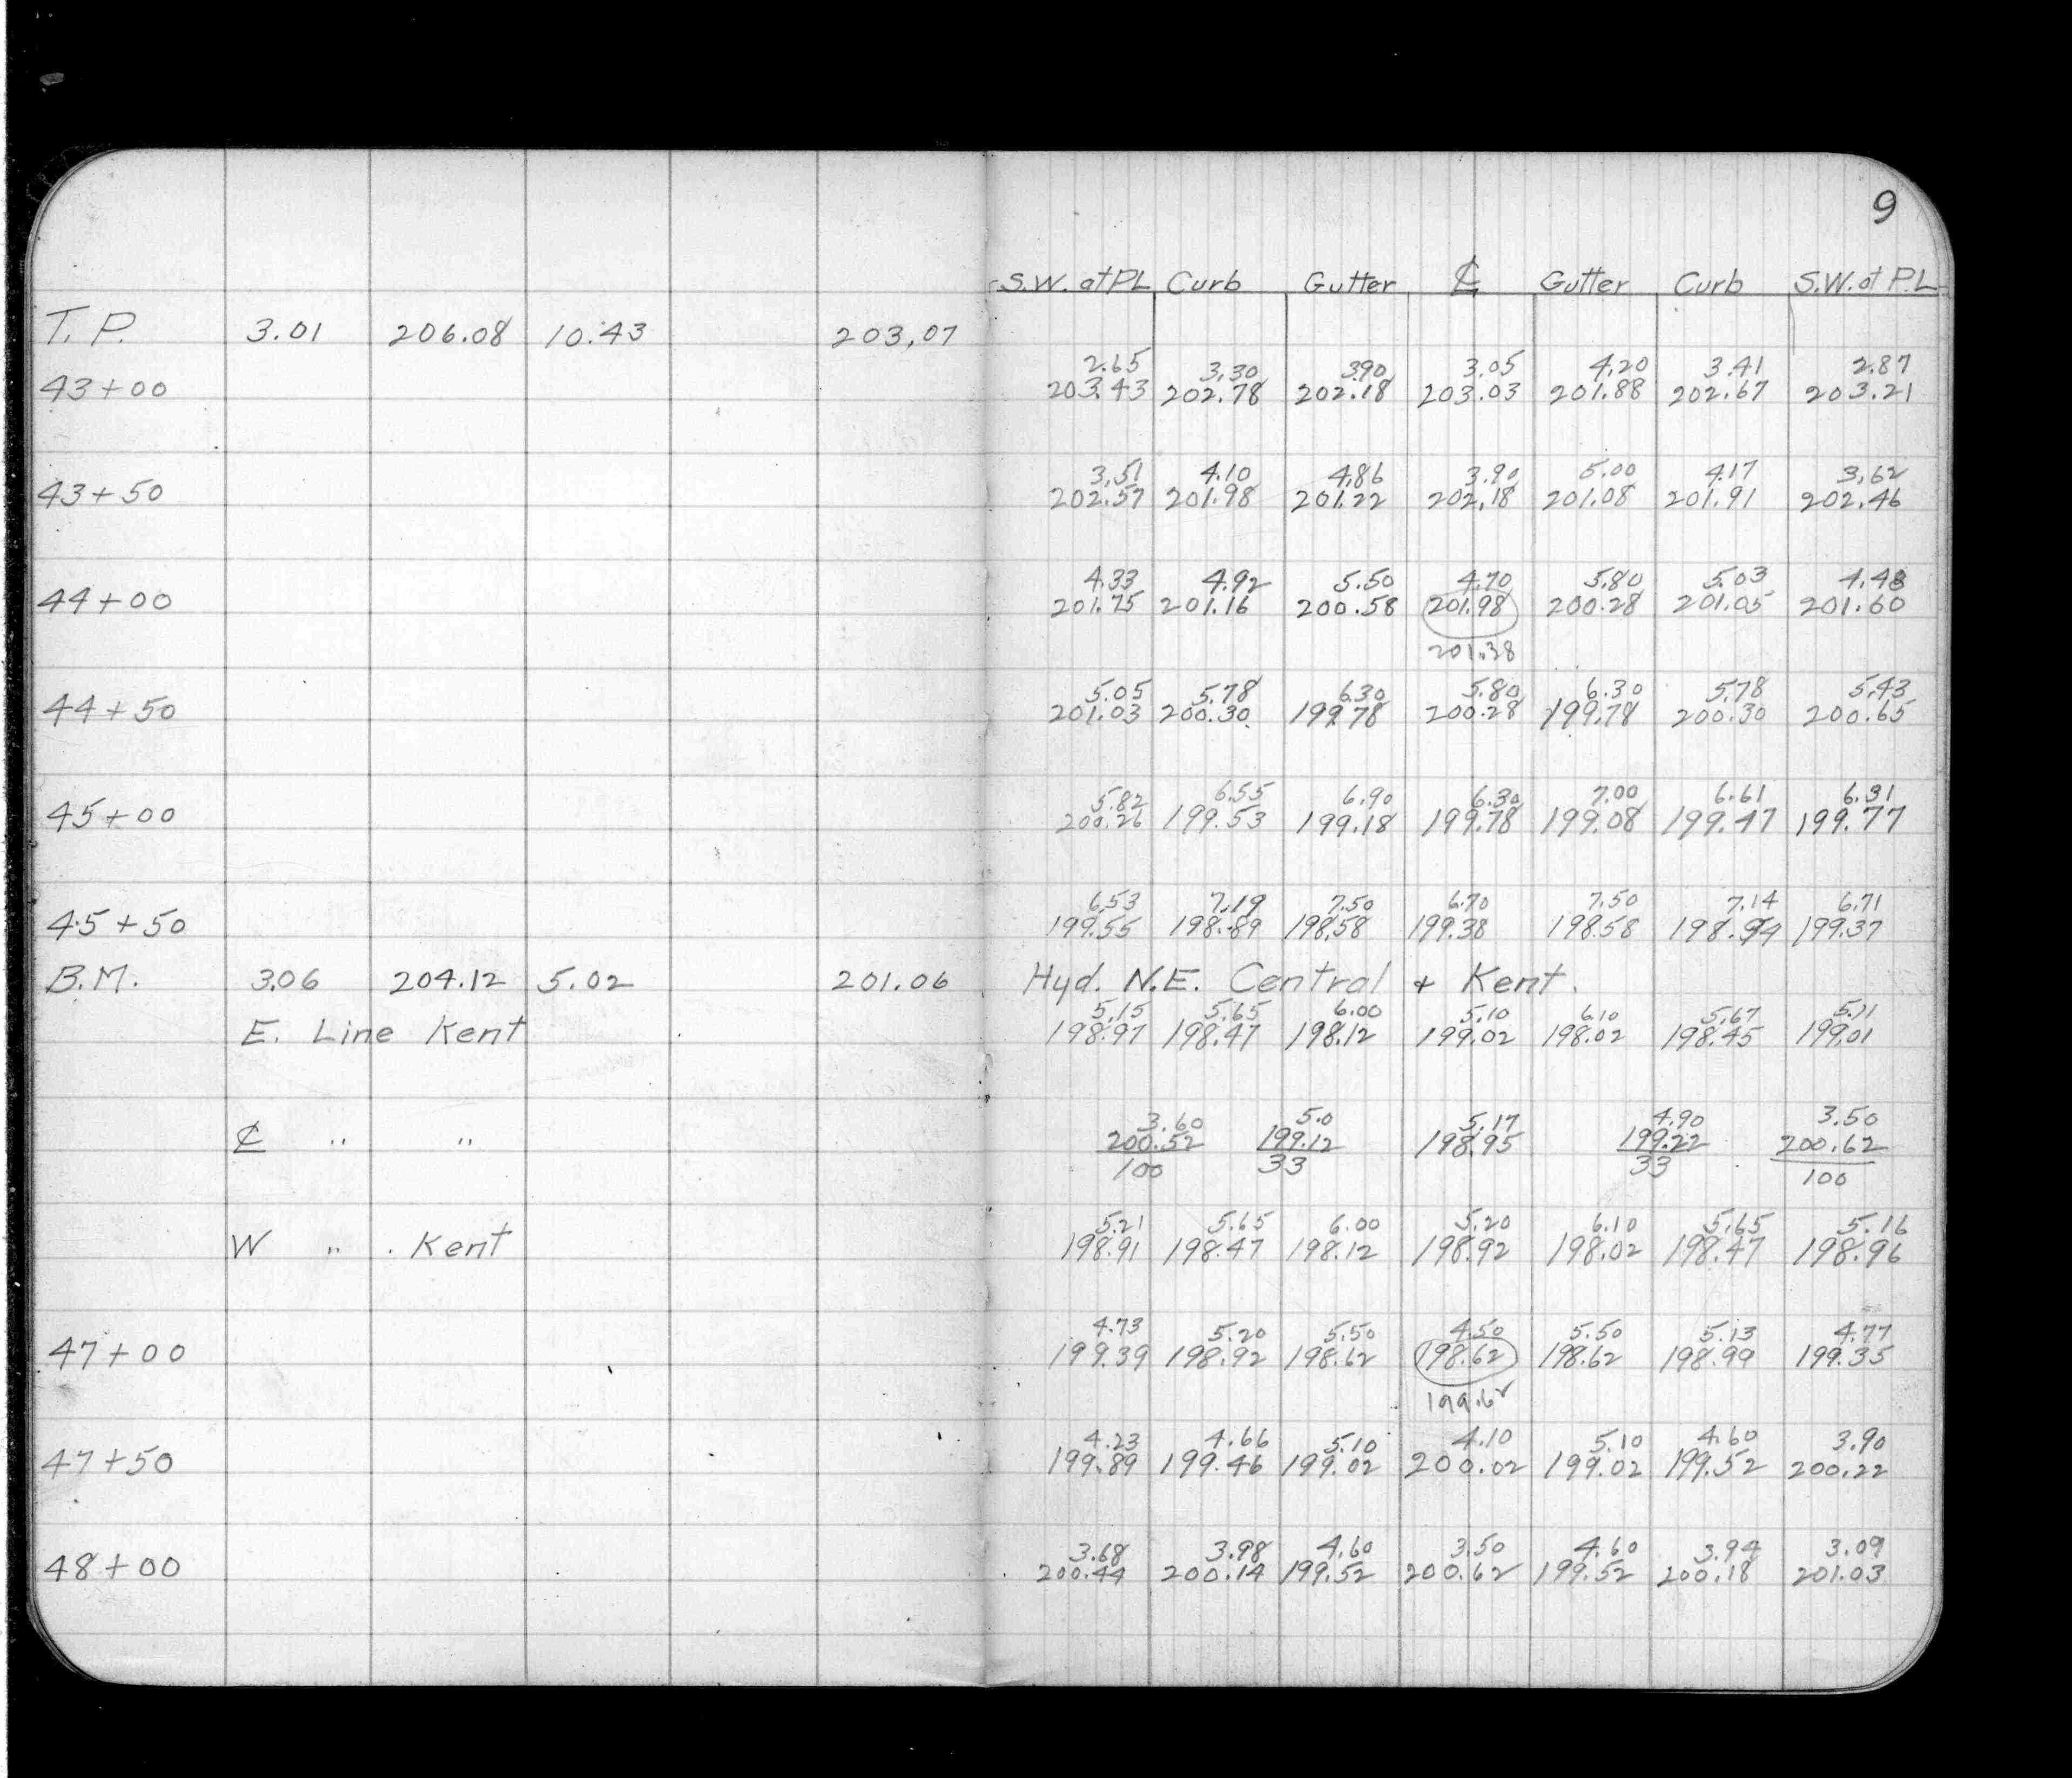 9
S.W. at PL Curb Gutter ℄ Gutter Curb S.W. at P.L.
T. P. 3.01 206.08 10.43 203.07
2.65 3.30 3.90 3.05 4.20 3.41 2.87
43+00 203.43 202.78 202.18 203.03 201.88 202.67 203.21
3.51 4.10 4.86 3.90 5.00 4.17 3.62
43+50 202.57 201.98 201.22 202.18 201.08 201.91 202.46
4.33 4.92 5.50 4.70 5.80 5.03 4.48
44+00 201.75 201.16 200.58 201.98 200.28 201.05 201.60
201.38
5.05 5.78 6.30 5.80 6.30 5.78 5.43
44+50 201.03 200.30 199.78 200.28 199.78 200.30 200.65
5.82 6.55 6.90 6.30 7.00 6.61 6.31
45+00 200.26 199.53 199.18 199.78 199.08 199.47 199.77
6.53 7.19 7.50 6.70 7.50 7.14 6.71
45+50 199.55 198.89 198.58 199.38 198.58 198.94 199.37
B.M. 3.06 204.12 5.02 201.06 Hyd. N.E. Central + Kent.
5.15 5.65 6.00 5.10 6.10 5.67 5.11
E. Line Kent 198.97 198.47 198.12 199.02 198.02 198.45 199.01
3.60 5.0 5.17 4.90 3.50
℄ " " 200.52 199.12 198.95 199.22 200.62
100 33 33 100
5.21 5.65 6.00 5.20 6.10 5.65 5.16
W " . Kent 198.91 198.47 198.12 198.92 198.02 198.47 198.96
4.73 5.20 5.50 4.50 5.50 5.13 4.77
47+00 199.39 198.92 198.62 198.62 198.62 198.99 199.35
199.62
4.23 4.66 5.10 4.10 5.10 4.60 3.90
47+50 199.89 199.46 199.02 200.02 199.02 199.52 200.22
3.68 3.98 4.60 3.50 4.60 3.94 3.09
48+00 200.44 200.14 199.52 200.62 199.52 200.18 201.03